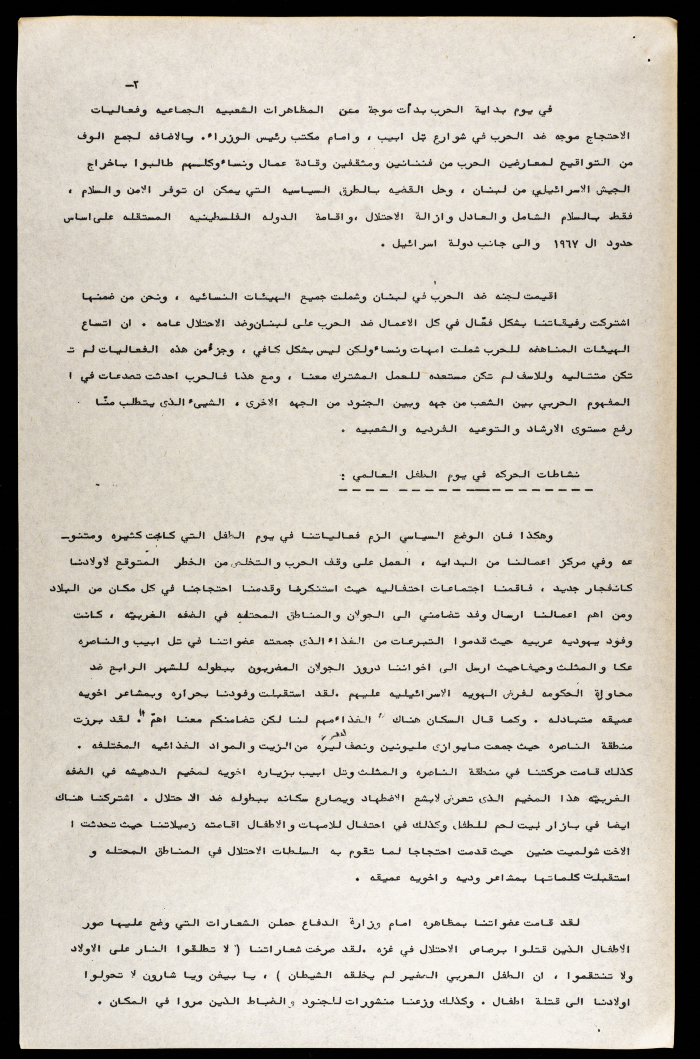 ٢ــ
في يوم بداية الحرب بدأت موجة معن المظاهرات الشعبيه الجماعيه وفعاليات
الاحتجاج موجه ضد الحرب في شوارع تل ابيب ، وامام مكتب رئيس الوزراء. بالاضافه لجمع الوف
من التواقيع لمعارضين الحرب من فننانين ومثقفين وقادة عمال ونساء وكلهم طالبوا باخراج
الجيش الاسرائيلي من لبنان ، وحل القضيه بالطرق السياسيه التي يمكن ان توفر الامن والسلام ،
فقط بالسلام الشامل والعادل وازالة الاحتلال ،واقامة الدوله الفلسطينيه المستقله على اساس
حدود ال ١٩٦٧ والى جانب دولة اسرائيل .
اقيمت لجنه ضد الحرب في لبنان وشملت جميع الهيئات النسائيه ، ونحن من ضمنها
اشتركت رفيقاتنا بشكل فعّال في كل الاعمال ضد الحرب على لبنان وضد الاحتلال عامه . ان اتساع
الهيئات المناهضه للحرب شملت امهات ونساء ولكن ليس بشكل كافي ، وجزء من هذه الفعاليات لم تـ
تكن متتاليه وللاسف لم تكن مستعده للعمل المشترك معنا ، ومع هذا فالحرب احدثت تصدعات في ا
المفهوم الحربي بين الشعب من جهه وبين الجنود من الجهه الاخرى ، الشيء الذى يتطلب منّا
رفع مستوى الارشاد والتوعيه الفرديه والشعبيه .
نشاطات الحركه في يوم الطفل العالمي :
وهكذا فان الوضع السياسي الزم فعالياتنا في يوم الطفل التي كانت كثيره ومتنوـ
عه وفي مركز اعمالنا من البدايه ، العمل على وقف الحرب والتخلص من الخطر المتوقع لاولادنا
كانفجار جديد ، فاقمنا اجتماعات احتفاليه حيث استنكرنا وقدمنا احتجاجنا في كل مكان من البلاد
ومن اهم اعمالنا ارسال وفد تضامني الى الجولان والمناطق المحتله في الضفه الغربيّه ، كانت
وفود يهوديه عربيه حيث قدموا التبرعات من الغذاء الذى جمعته عضواتنا في تل ابيب والناصره
عكا والمثلث وحيفا حيث ارسل الى اخواننا دروز الجولان المضربون ببطوله للشهر الرابع ضد
محاولة الحكومه لفرض الهويه الاسرائيليه عليهم .لقد استقبلت وفودنا بحراره وبمشاعر اخويه
عميقه متبادله . وكما قال السكان هناك " الغذاء مهم لنا لكن تضامنكم معنا اهمّ ". لقد برزت
منطقة الناصره حيث جمعت مايوازى مليونين ونصف ليره من الزيت والمواد الغذائيه المختلفه .
كذلك قامت حركتنا في منطقة الناصره والمثلث وتل ابيب بزياره اخويه لمخيم الدهيشه في الضفه
الغربيّه هذا المخيم الذى تعرض لابشع الاضطهاد ويصارع سكانه ببطوله ضد الاحتلال . اشتركنا هناك
ايضا في بازار لبيت لحم للطفل وكذلك في احتفال للامهات والاطفال اقامته زميلاتنا حيث تحدثت ا
الاخت شولميت حنين حيث قدمت احتجاجا لما تقوم به السلطات الاحتلال في المناطق المحتله و
استقبلت كلماتها بمشاعر وديه واخويه عميقه .
لقد قامت عضواتنا بمظاهره امام وزارة الدفاع حملن الشعارات التي وضع عليها صور
الاطفال الذين قتلوا برصاص الاحتلال في غزه .لقد صرخت شعاراتنا ( لا تطلقوا النار على الاولاد
ولا تنتقموا ، ان الطفل العربي الصغير لم يخلقه الشيطان ) ، يا بيغن ويا شارون لا تحولوا
اولادنا الى قتلة اطفال . وكذلك وزعنا منشورات للجنود والضباط الذين مروا في المكان .